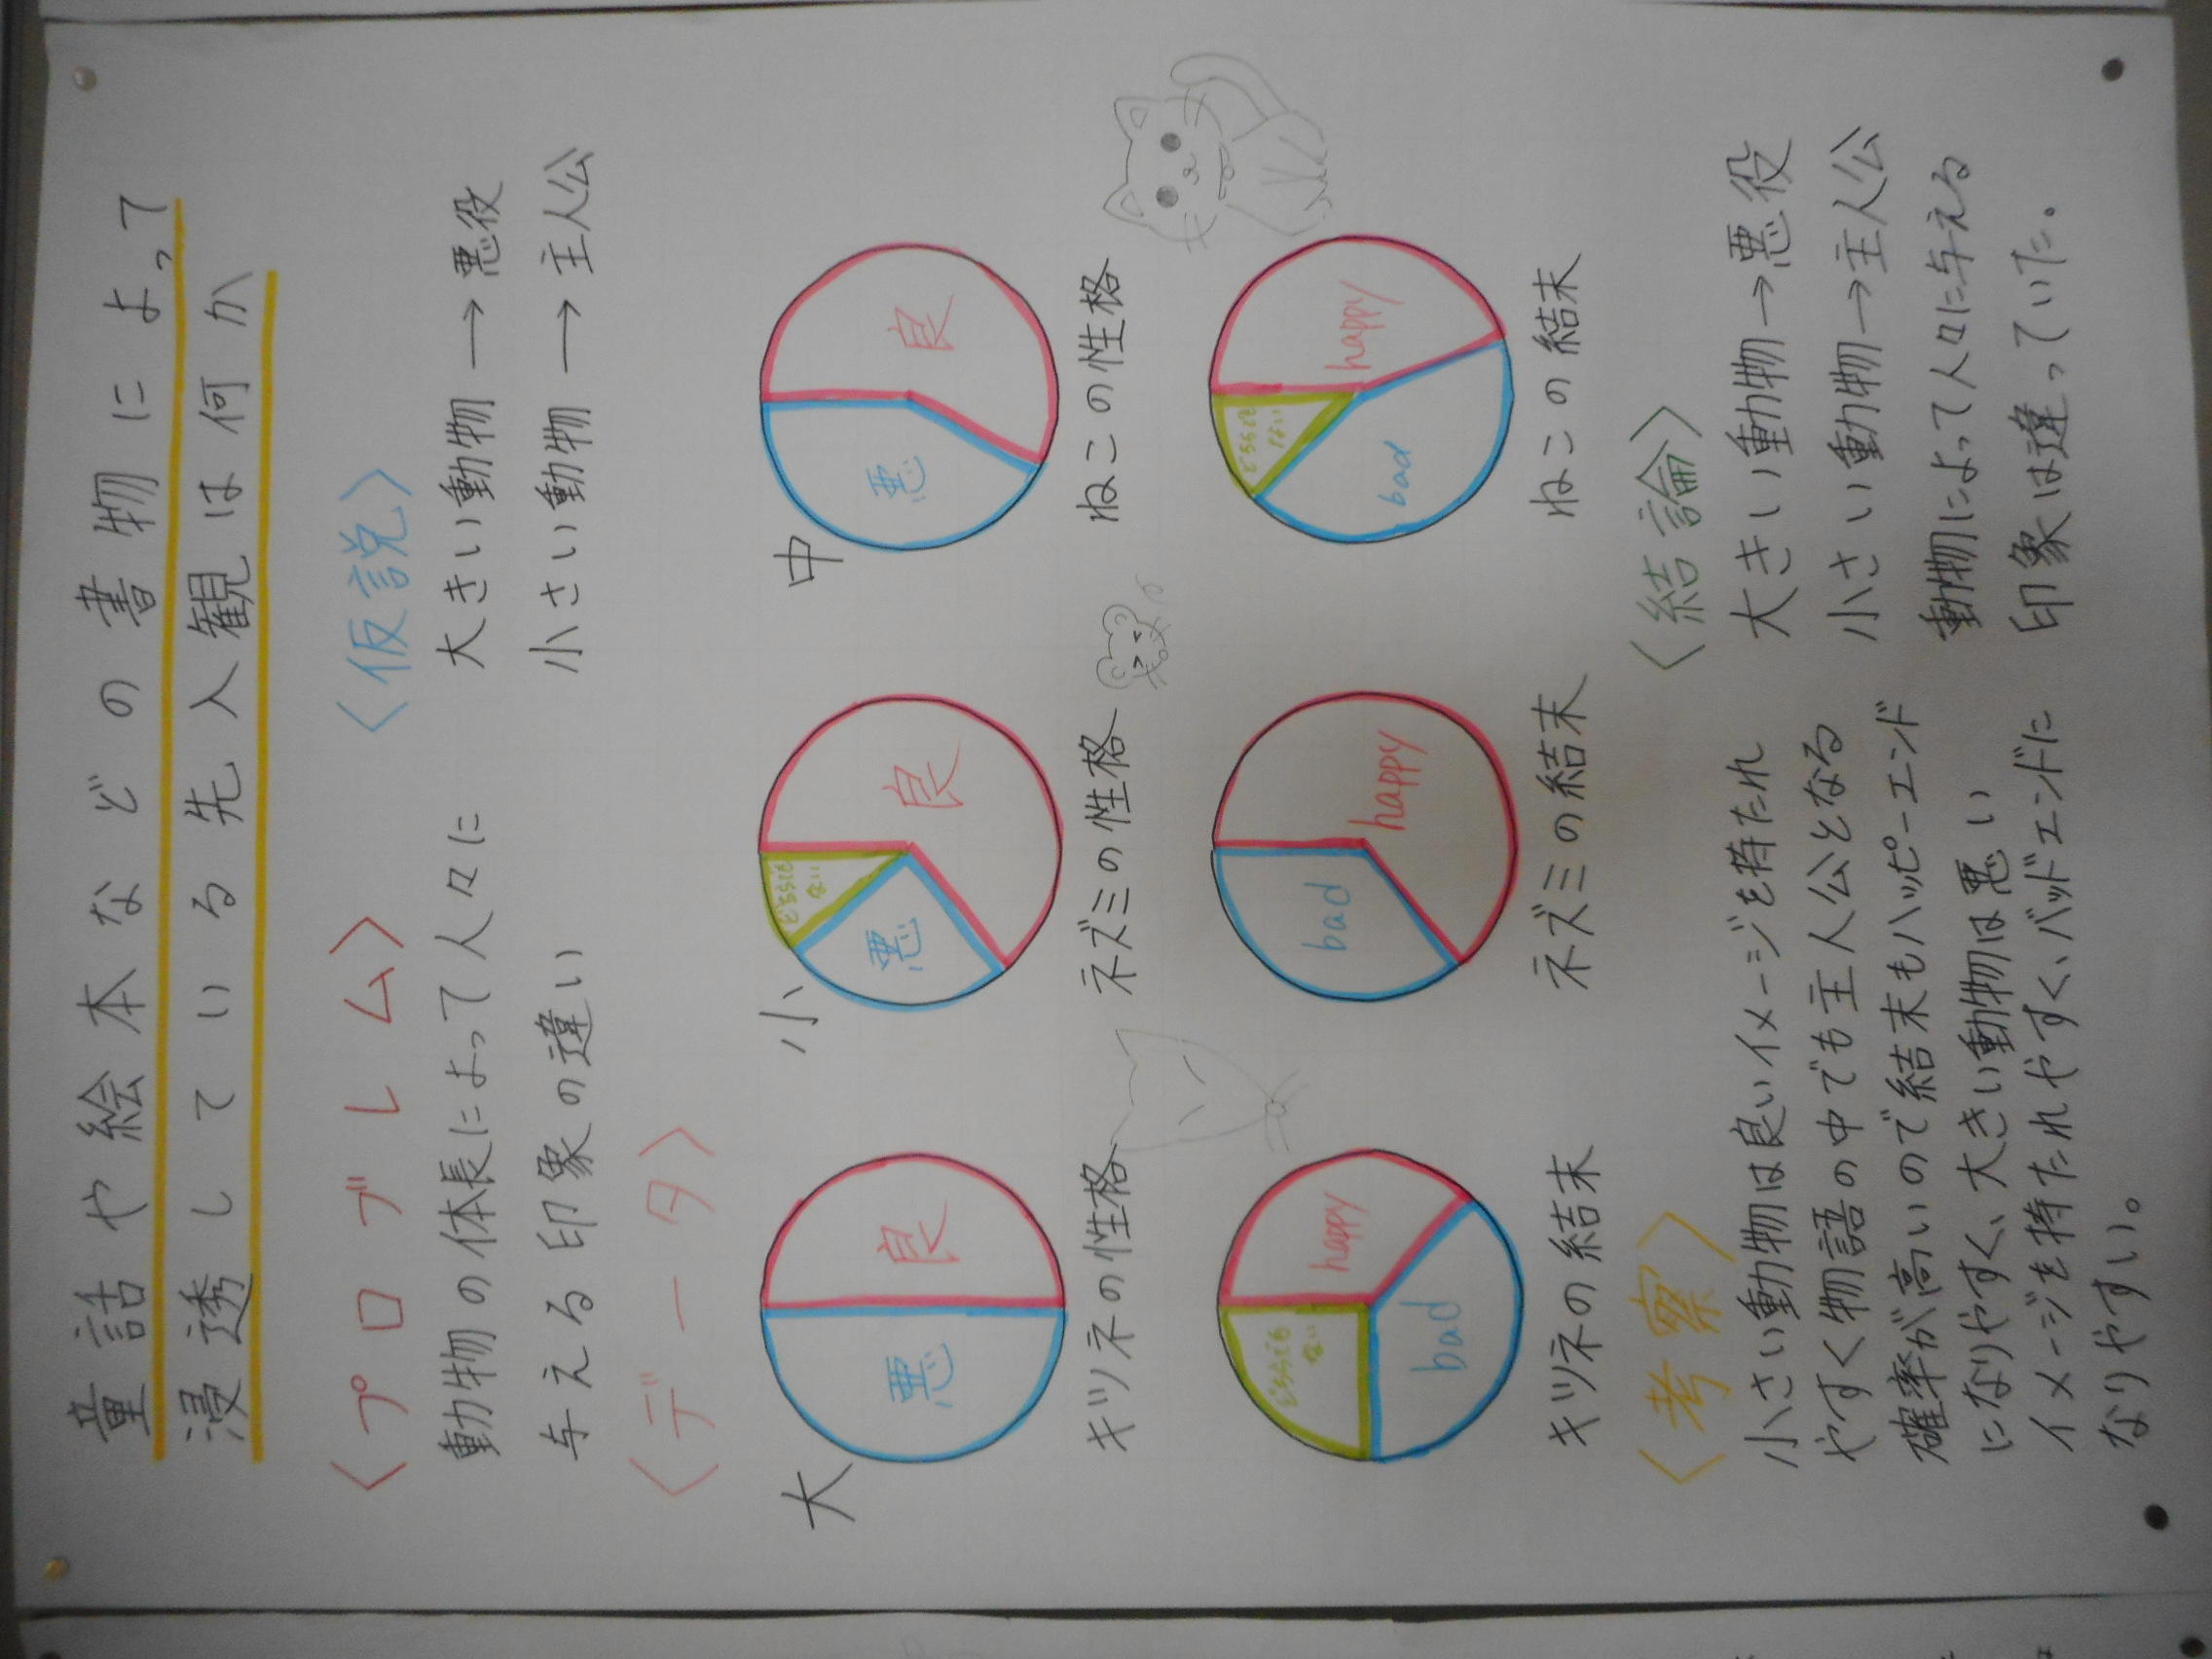 童話や絵本などの書物によって
浸透している先入観は何か
〈プロブレム〉
動物の体長によって人々に
与える印象の違い
〈仮説〉
大きい動物→悪役
小さい動物→主人公
〈データ〉
大
悪
良
キツネの性格
小
どちらでもない
悪
良
ネズミの性格
中
悪
良
ねこの性格
どちらでもない
happy
bad
キツネの結末
bad
happy
ネズミの結末
どちらでもない
happy
bad
ねこの結末
〈考察〉
小さい動物は良いイメージを持たれ
やすく物語の中でも主人公となる
確率が高いので結末もハッピーエンド
になりやすく、大きい動物は悪い
イメージを持たれやすく、バッドエンドに
なりやすい。
〈結論〉
大きい動物→悪役
小さい動物→主人公
動物によって人々に与える
印象は違っていた。